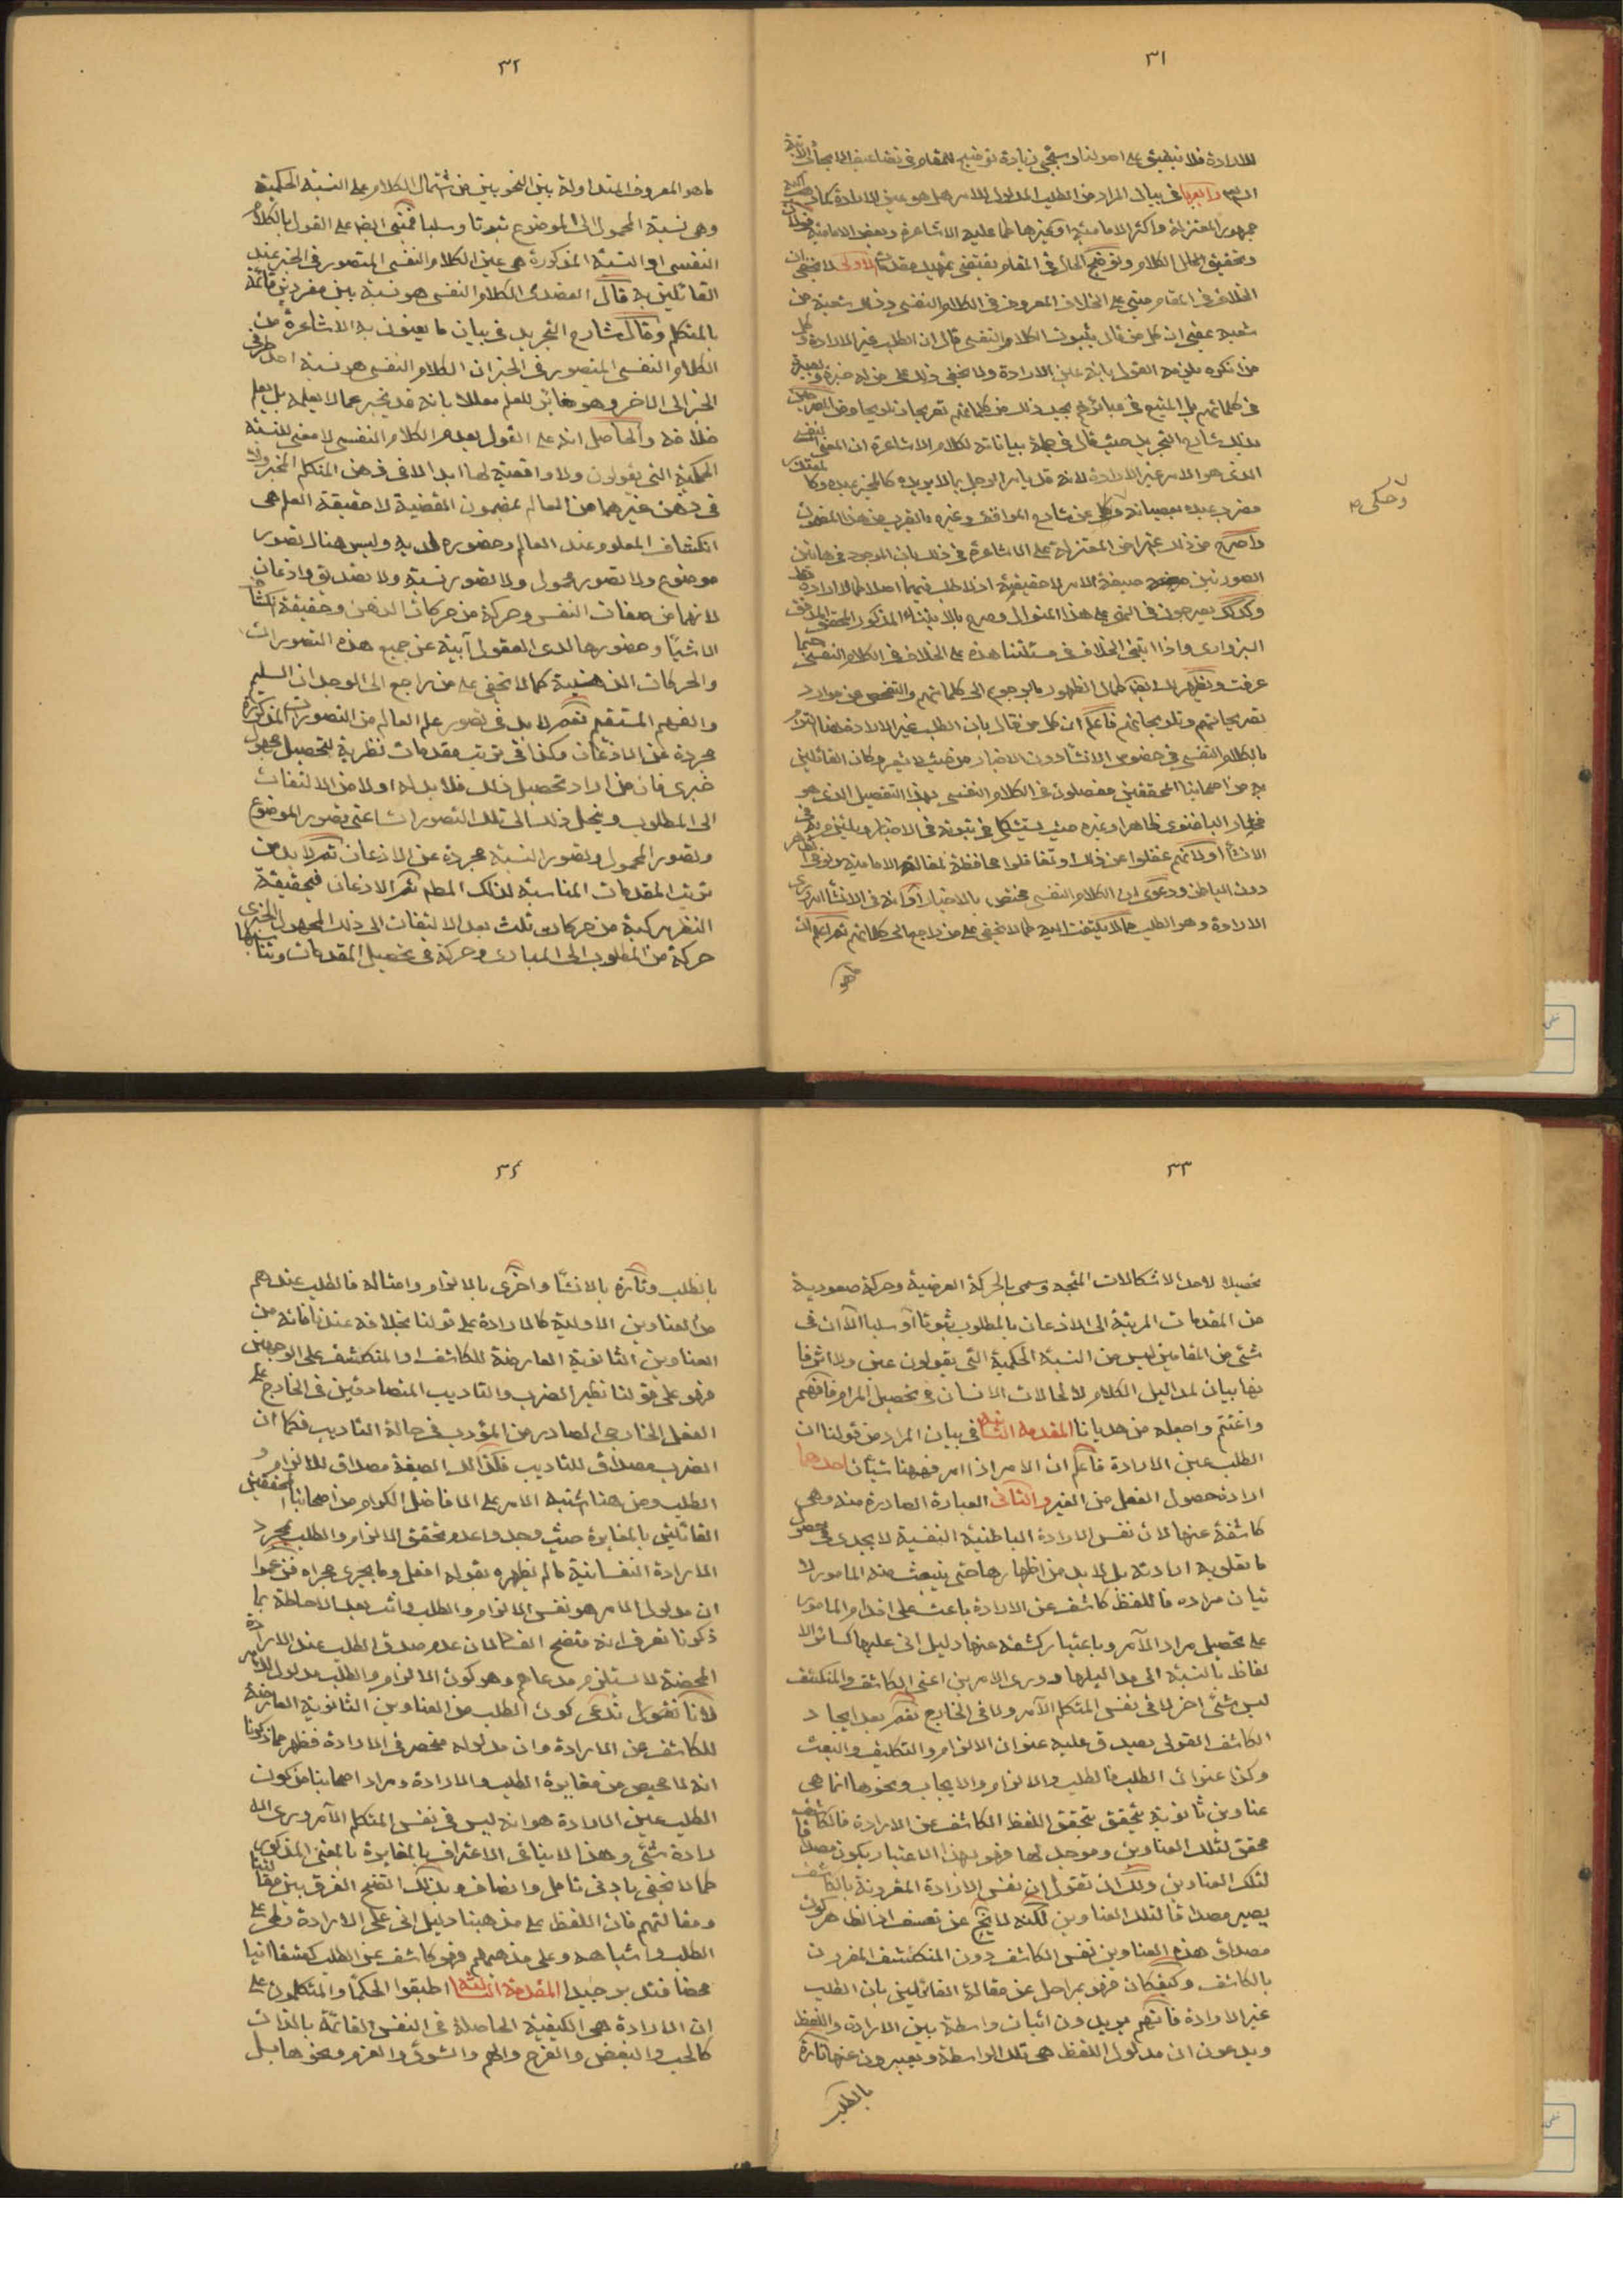 ٣١
للارادة فلا ينطبق على اصولنا وسيجئ زيادة توضيح للمقام فى تضاعيف المباحث الآتية
رابعها فى بيان المراد من الطلب المدلول للامر هل هو عين الارادة كما
جمهور المعتزلة واكثر الامامية او غيرها كما عليه الاشاعرة وبعض الامامية
وتحقيق الكلام وتوضيح الحال فى المقام يقتضى تمهيد مقدمات الاولى لا يخفى ان
الخلاف فى المقام مبنى على الخلاف المعروف فى الكلام النفسى وذلك شعبة من
شعبه بمعنى ان كل من قال بثبوت الكلام النفسى قال ان الطلب غير الارادة وكل
من انكره يلزمه القول بانه عين الارادة ولا يخفى ذلك على من له خبرة وبصيرة
فى كلماتهم بل المتتبع فى مبانيهم يجد ذلك من كلماتهم تصريحا وتلويحا وممن
بذلك شارح التجريد حيث قال فى جملة بياناته لكلام الاشاعرة ان المعنى النفسى
الذى هو الامر غير الارادة لانه قد يامر الرجل بما لا يريده كالمختبر عبده وكا لمعتذر
من ضرب عبده بعصيانه وحكى عن شارح المواقف وغيره ما يقرب من هذا المضمون
لا وحكى م
واصرح من ذلك اعتراض المعتزلة على الاشاعرة فى ذلك بان الموجود فى هاتين
الصورتين صيغة الامر لا حقيقته اذ لا طلب فيهما اصلا كما لا ارادة
وكذلك يصرحون فى النهى على هذا المنوال وصرح بالابتناء المذكور المحقق
السبزوارى واذا ابتنى الخلاف فى مسئلتنا هذه على الخلاف فى الكلام النفسى حيثما
عرفت ويظهر لك ايضا كمال الظهور بالرجوع الى كلماتهم والتفحص من موارد
تصريحاتهم وتلويحاتهم فاعلم ان كل من قال بان الطلب غير الارادة فقد التزم
بالكلام النفسى فى خصوص الانشاء دون الاخبار من حيث لا يشعر وكان القائلين
به من اصحابنا المحققين مفصلون فى الكلام النفسى بهذا التفصيل الذى هو
مختار الباغنوى ظاهرا وغيره حيث يستشكل فى ثبوته فى الاخبار ويلتزم به فى
الانشاء او كانهم غفلوا عن ذلك او تغافلوا محافظة لمقالة الامامية ولو فى الظاهر
دون الباطن ودعوى ان الكلام النفسى مختص بالاخبار وانه فى الانشاء
الارادة وهو الطلب مما لا يلتفت اليه كما لا يخفى على من راجع الى كلماتهم ثم اعلم ان
ما هو
٣٢
ما هو المعروف المتداولة بين النحويين من اشتمال الكلام على النسبة الحكمية
وهى نسبة المحمول الى الموضوع ثبوتا وسلبا فمبنى ايضا على القول بالكلام
النفسى اذ النسبة المذكورة هى عين الكلام النفسى المتصور فى الخبر عند
القائلين به قال العضدى الكلام النفسى هو نسبة بين مفردين قائمة
بالمتكلم وقال شارح التجريد فى بيان ما يعنون به الاشاعرة من
الكلام النفسى المتصور فى الخبر ان الكلام النفسى هو نسبة احد طرفى
الخبر الى الاخر وهو مغاير للعلم معللا بانه قد يخبر عما لا يعلمه بل يعلم
خلافه والحاصل انه على القول بعدم الكلام النفسى لا معنى للنسبة
الحكمية التى يقولون ولا واقعية لها ابدا لا فى ذهن المتكلم المخبر ولا
فى ذهن غيرهما من العالم بمضمون القضية لا حقيقة العلم هى
انكشاف المعلوم عند العالم وحضوره لديه وليس هناك تصور
موضوع ولا تصور محمول ولا تصور نسبة ولا تصديق واذعان
لانها من صفات النفس وحركة من حركات الذهن وحقيقة انكشاف
الاشياء وحضورها لدى العقول آبية عن جميع هذه التصورات
والحركات الذهنية كما لا يخفى على من راجع الى الوجدان السليم
والفهم المستقيم نعم لا بد فى تصور علم العالم من التصورات المذكورة
مجردة عن الاذعان وكذا فى ترتيب مقدمات نظرية لتحصيل مجهول
خبرى فان من اراد تحصيل ذلك فلا بد له اولا من الالتفات
الى المطلوب وينحل ذلك الى تلك التصورات اعنى تصور الموضوع
وتصور المحمول وتصور النسبة مجردة عن الاذعان ثم لا بد من
ترتيب المقدمات المناسبة لذلك المطلب ثم الاذعان فحقيقة
النظر مركبة من حركات ثلث بعد الالتفات الى ذلك المجهول الخبرى
حركة من المطلوب الى المبادى وحركة فى تحصيل المقدمات وترتيبها
٣٣
تحصيلا لاحد الاشكالات المنتجة وسمى بالحركة العرضية وحركة صعودية
من المقدمات المرتبة الى الاذعان بالمطلوب ثبوتا او سلبا الا ان فى
شئ من المقامين ليس من النسبة الحكمية التى يقولون عين ولا اثر فا
نها بيان لمداليل الكلام لا لحالات الانسان فى تحصيل المرام فافهم
واغتنم واجعله من هدايانا المقدمة الثانية فى بيان المراد من قولنا ان
الطلب عين الارادة فاعلم ان الامر اذا امر فههنا شيئان احدهما
ارادة حصول الفعل من الغير والثانى العبارة الصادرة منه وهى
كاشفة عنها لان نفس الارادة الباطنية النفسية لا يجدى فى حصول
ما تعلق به ارادته بل لا بد من اظهارها حتى ينبعث منه المامور لا
تيان مراده فاللفظ كاشف عن الارادة باعث على اقدام المامور
على تحصيل مراد الآمر وباعتبار كشفه عنها دليل انى عليها كسائر الا
لفاظ بالنسبة الى مداليلها وورى الامرين اعنى الكاشف والمنكشف
ليس شئ اخر لا فى نفس المتكلم الآمر ولا فى الخارج نعم بعد ايجاد
الكاشف القولى يصدق عليه عنوان الالزام والتكليف والبعث
وكذا عنوان الطلب فالطلب والالزام والايجاب ونحوها انما هى
عناوين ثانوية يتحقق بتحقق اللفظ الكاشف عن الارادة فالكاشف
محقق لتلك العناوين وموجد لها فهو بهذا الاعتبار يكون مصداقا
لتلك العناوين ولك ان تقول ان نفس الارادة المقرونة بالكاشف
يصير مصداقا لتلك العناوين لكنه لا يخ عن تعسف اذ الظاهر كون
مصداق هذه العناوين نفس الكاشف دون المنكشف المقرون
بالكاشف وكيف كان فهو بمراحل عن مقالة القائلين بان الطلب
غير الارادة فانهم يريدون اثبات واسطة بين الارادة واللفظ
ويدعون ان مدلول اللفظ هى تلك الواسطة ويعبرون عنها تارة
بالطلب
٣٤
بالطلب وتارة بالانشاء واخرى بالالزام وامثاله فالطلب عندهم
من العناوين الاولية كالارادة على قولنا بخلافه عندنا فانه من
العناوين الثانوية العارضة للكاشف او المنكشف على الوجهين
فهو على قولنا نظير الضرب والتاديب المتصادقين فى الخارج على
الفعل الخارجى الصادر من المؤدب فى حالة التاديب فكما ان
الضرب مصداق للتاديب فكذلك الصيغة مصداق للالزام و
الطلب ومن هنا اشتبه الامر على الافاضل الكرام من اصحابنا المحققين
القائلين بالمغايرة حيث وجدوا عدم تحقق الالزام والطلب بمجرد
الارادة النفسانية ما لم يظهره بقوله افعل وما يجرى مجراه فزعموا
ان مدلول الامر هو نفس الالزام والطلب وانت بعد الاحاطة بما
ذكرنا تعرف انه متضح الفساد لان عدم صدق الطلب عند الارادة
المحضة لا يستلزم مدعاهم وهو كون الالزام والطلب مدلول الامر
لانا نقول ندعى كون الطلب من العناوين الثانوية العارضة
للكاشف عن الارادة وان مدلوله منحصر فى الارادة فظهر مما ذكرنا
انه لا محيص من مغايرة الطلب والارادة ومراد اصحابنا من كون
الطلب عين الارادة هو انه ليس فى نفس المتكلم الآمر ورى الا
رادة شئ وهذا لا ينافى الاعتراف بالمغايرة بالمعنى المذكور
كما لا يخفى بادنى تامل وانصاف وبذلك اتضح الفرق بين مقالتنا
ومقالتهم فان اللفظ على مذهبنا دليل انى على الارادة وعلى
الطلب واشباهه وعلى مذهبهم فهو كاشف عن الطلب كشفا انيا
محضا فتدبر جيدا المقدمة الثالثة اطبقوا الحكماء والمتكلمون على
ان الارادة هى الكيفية الحاصلة فى النفس القائمة بالذات
كالحب والبغض والفرح والهم والشوق والعزم ونحوها بل